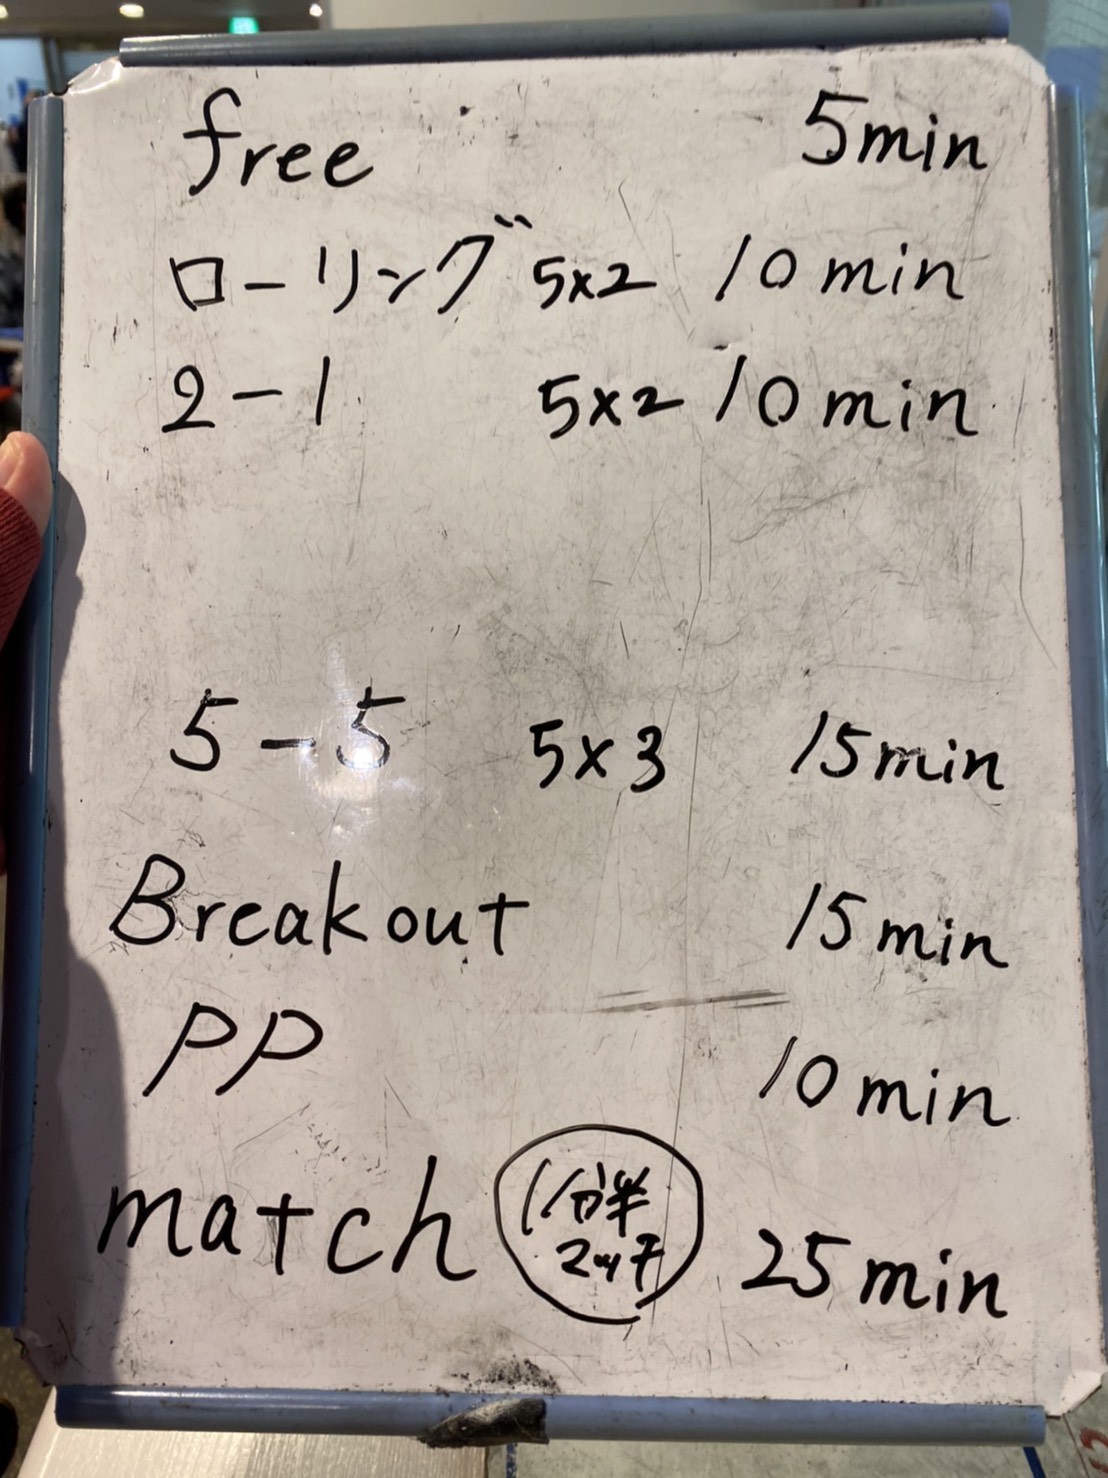 free 5min
ローリング 5x2 10min
2-1 5x2 10min
5-5 5x3 15min
Breakout 15min
PP 10min
match 1分半 25min